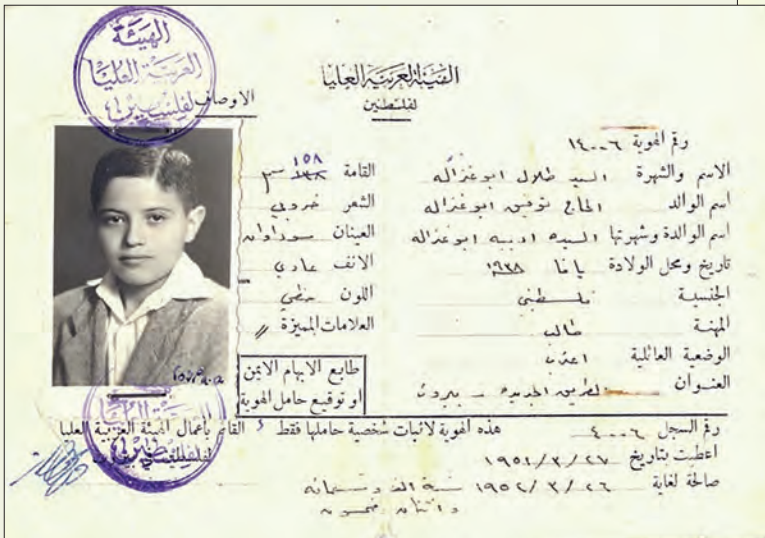 الهيئة
العربية العليا
لفلسطين
الهيئة العربية العليا
لفلسطين
رقم الهوية ١٤٠٠٦
الاسم والشهرة السيد طلال ابو غزاله
اسم الوالد الحاج توفيق ابو غزاله
اسم الوالدة وشهرتها السيده اديبه ابو غزاله
تاريخ ومحل الولادة يافا ١٩٣٨
الجنسية فلسطيني
المهنة طالب
الوضعية العائلية اعزب
العنوان الطريق الجديدة - بيروت
الاوصاف
القامة ١٥٨ سم
الشعر خروبي
العينان سوداوان
الانف عادي
اللون حنطي
العلامات المميزة //
طابع الابهام الايمن
او توقيع حامل الهوية
رقم السجل ٤٠٠٦ هذه الهوية لاثبات شخصية حاملها فقط القائم بأعمال الهيئة العربية العليا
اعطيت بتاريخ ١٩٥١/٣/٢٧
صالحة لغاية ١٩٥٢/٣/٢٦ سنة الف وتسعمائه
واثنان وخمسون